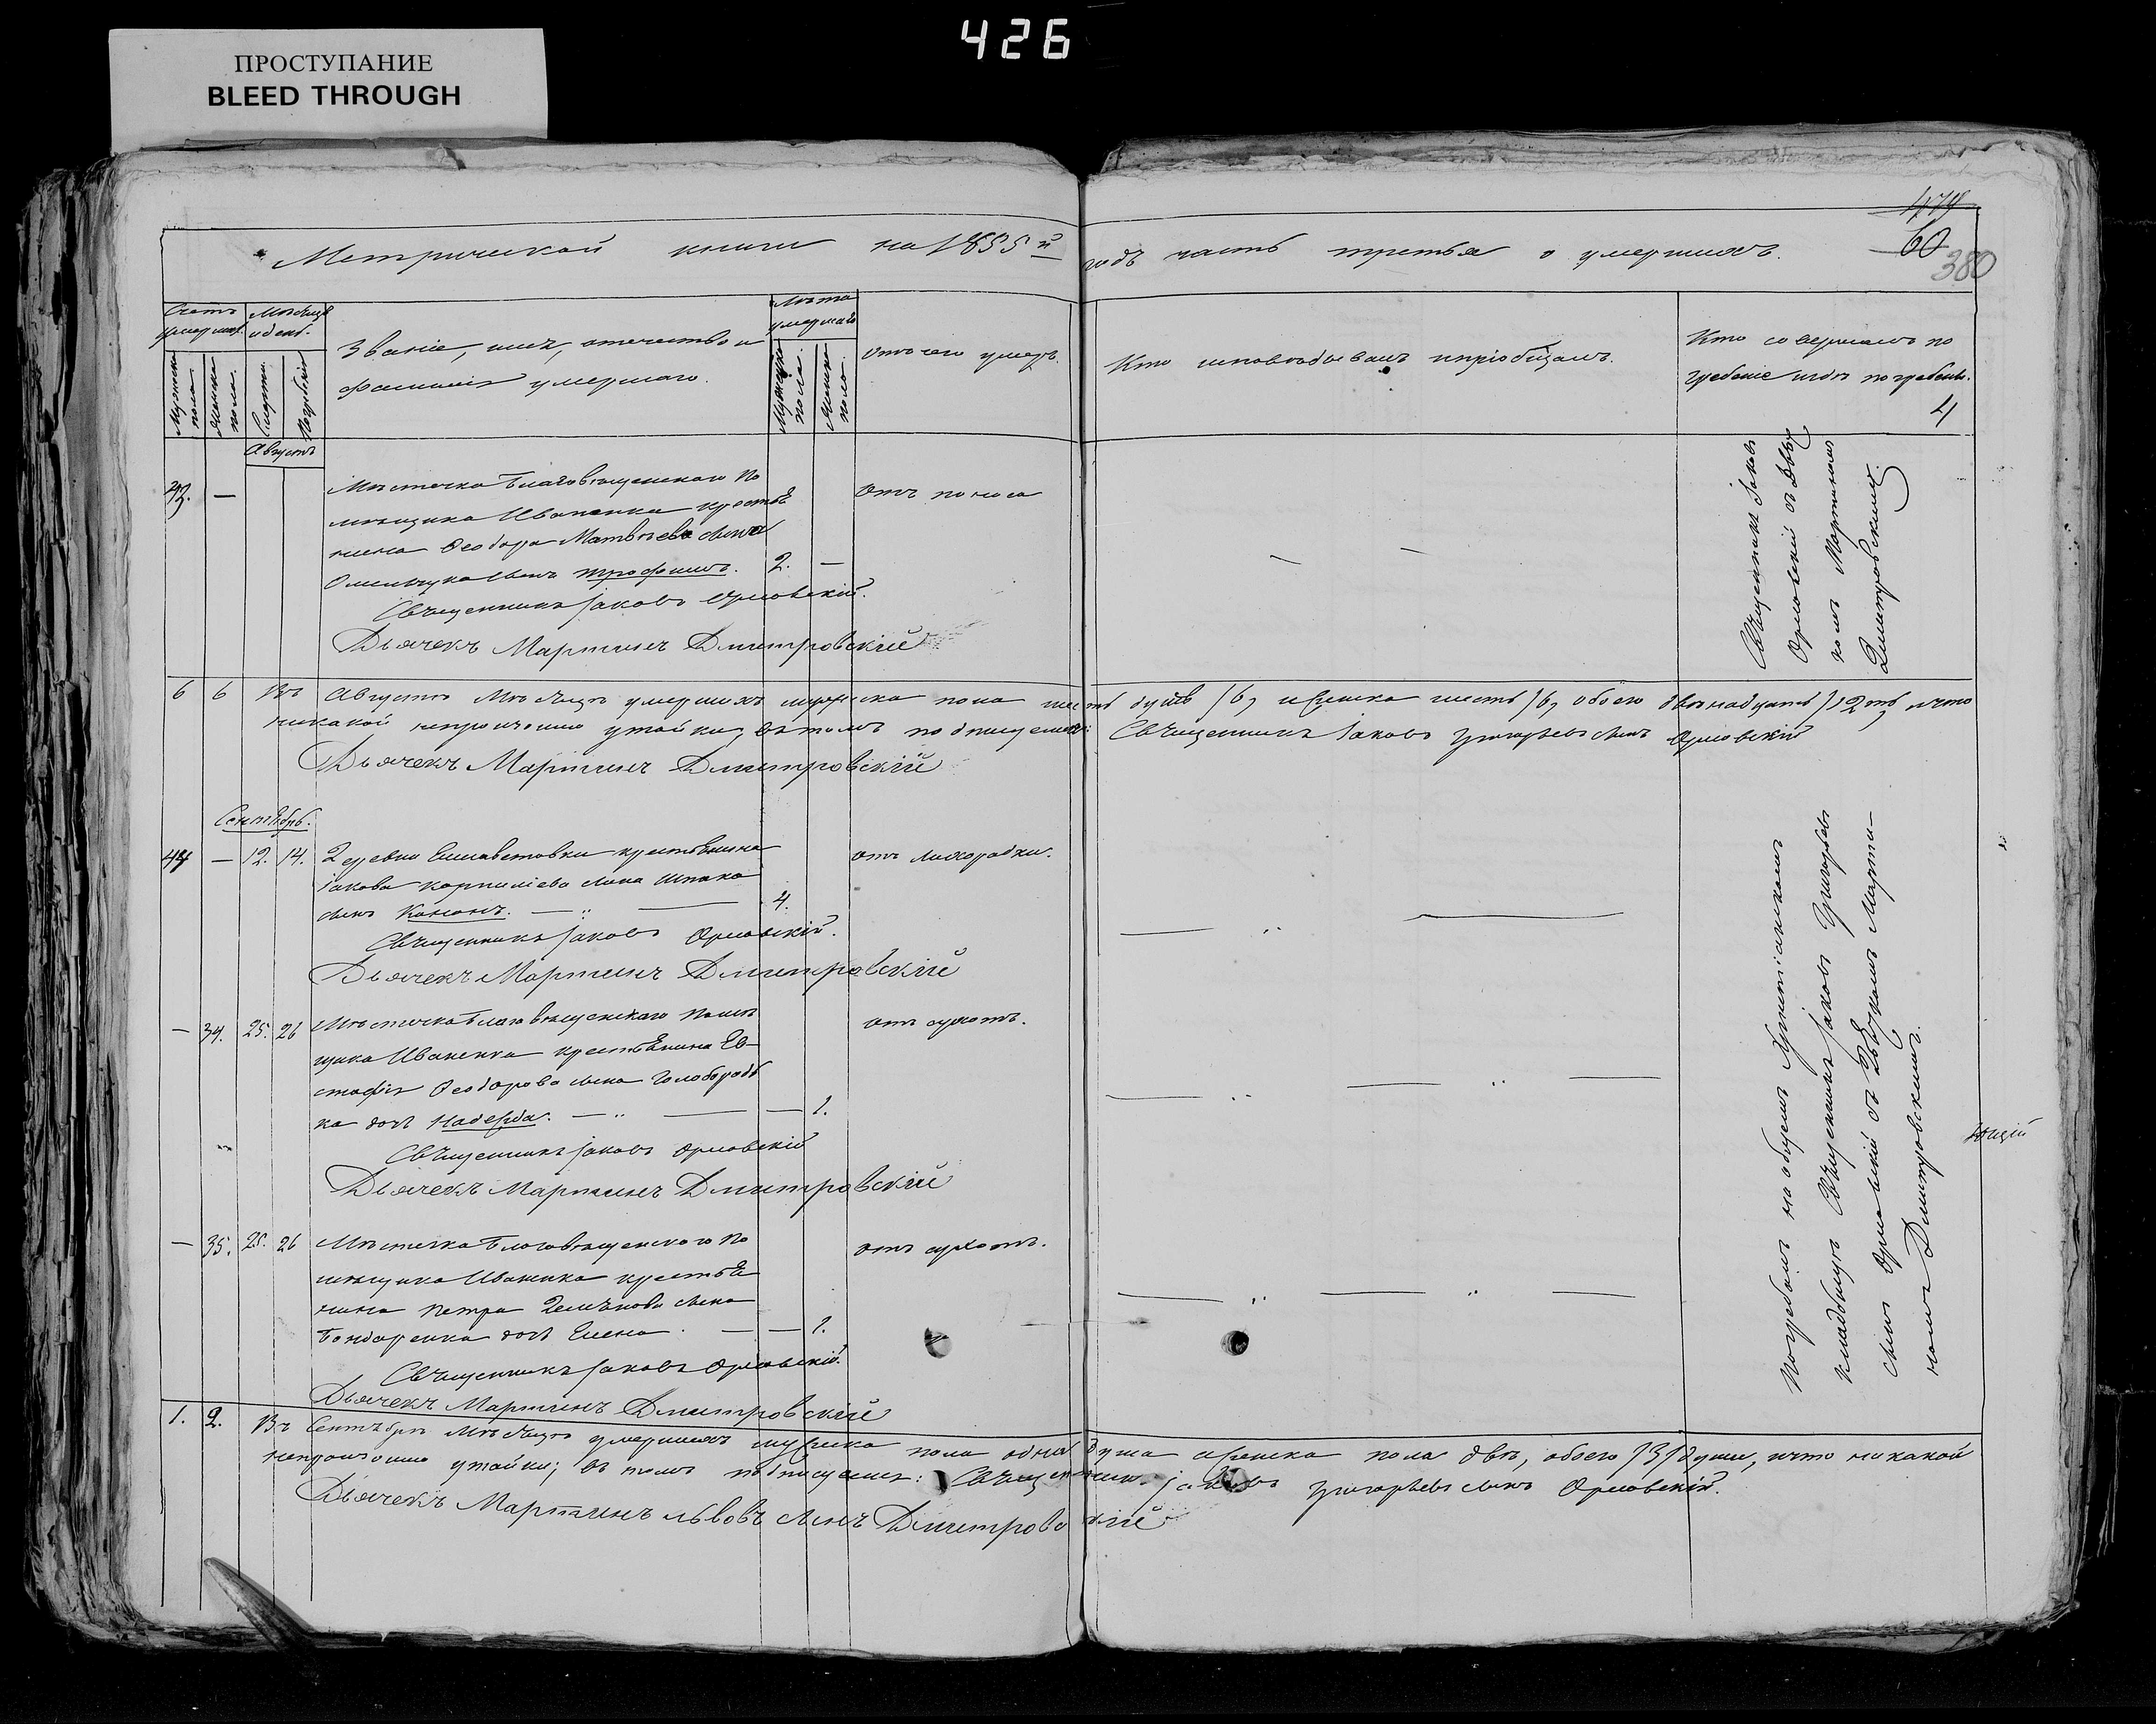 426
ПРОСТУПАНИЕ
BLEED THROUGH
479
60
380
Метрической книги на 1855й годъ часть третья о умершихъ.
Счетъ умершихъ.
Мужеска пола.
Женска пола.
Мѣсяцъ и день.
Смерти.
Погребенія
Званіе, имя, отечество и
фамилія умершаго.
Лѣта умершаго
Мужеска пола.
Женска пола.
отъ чего умеръ.
Кто исповѣдывалъ и пріобщалъ.
Кто совершалъ по
гребеніе и гдѣ погребены.
4
Августъ
43. —
Мѣстечка Благовѣщенскаго по
мѣщика Иваненка крестья
нина Ѳеодора Матвѣева сына
Омельчука сынъ Трофимъ. 2. —
отъ поноса
Священникъ Іаковъ Орловскій.
Дьячекъ Мартинъ Дмитровскій
Священникъ Іаковъ
Орловскій съ Дьяч
комъ Мартиномъ
Дмитровскимъ.
6 6 Въ Августѣ мѣсяцѣ умершихъ мужеска пола шесть душъ /6, женска шесть /6, обоего двенадцать /12ть, и что
никакой непрописано утайки, въ томъ подписуемся: Священникъ Іаковъ Григорьевъ сынъ Орловскій
Дьячекъ Мартинъ Дмитровскій
Сентябрь.
44 — 12. 14. Деревни Елисаветовки крестьянина
Іакова Корнилiева сына Шпака
сынъ Кононъ. — 4.
отъ лихорадки.
Священникъ Іаковъ Орловскій.
Дьячекъ Мартинъ Дмитровскій
— 34. 25. 26 Мѣстечка Благовѣщенскаго помѣ
щика Иваненка крестьянина Ев
стафія Ѳеодорова сына Голобородь
ка дочь Надежда. — — 1.
отъ сухотъ.
Священникъ Іаковъ Орловскій
Дьячекъ Мартинъ Дмитровскій
— 35. 25. 26 Мѣстечка Благовѣщенского по
мѣщика Иваненка крестья
нина Петра Демянова сына
Бондаренка дочь Елена. — — 1.
отъ сухотъ.
Священникъ Іаковъ Орловскій.
Дьячекъ Мартинъ Дмитровскій
Погребенъ на общемъ Христіанскомъ
кладбищѣ Священникъ Іаковъ Григорьевъ
сынъ Орловскій съ Дьячкомъ Марти-
номъ Дмитровскимъ.
ющій
1. 2. Въ Сентябрѣ мѣсяцѣ умершихъ мужеска пола одна душа женска пола двѣ, обоего /3/ души, и что никакой
непрописано утайки; въ томъ подписуемся: Священникъ Іаковъ Григорьевъ сынъ Орловскій.
Дьячекъ Мартинъ Львовъ сынъ Дмитровскій